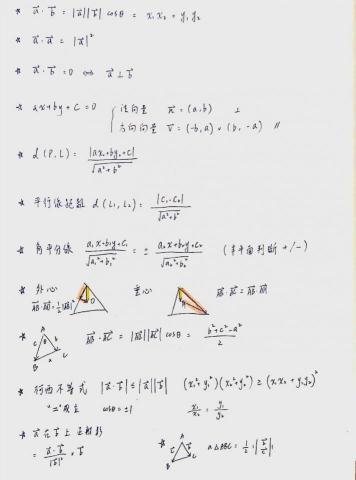 * a⃗ · b⃗ = |a⃗||b⃗| cosθ = x₁x₂ + y₁y₂
* a⃗ · a⃗ = |a⃗|²
* a⃗ · b⃗ = 0 ⇔ a⃗ ⊥ b⃗
* ax+by+c=0 { 法向量 n⃗ = (a,b) ⊥
方向向量 v⃗ = (-b,a) or (b,-a) //
* d(P,L) = |ax₀+by₀+c| / √(a²+b²)
* 平行線距離 d(L₁,L₂) = |C₁-C₂| / √(a²+b²)
* 角平分線 (a₁x+b₁y+c₁) / √(a₁²+b₁²) = ± (a₂x+b₂y+c₂) / √(a₂²+b₂²) (半平面判斷 +/-)
* 外心 垂心
O
* A B C c b a θ AB⃗ · AC⃗ = |AB⃗||AC⃗| cosθ = (b²+c²-a²) / 2
* 柯西不等式 |a⃗ · b⃗| ≤ |a⃗||b⃗| (x₁²+y₁²)(x₂²+y₂²) ≥ (x₁x₂+y₁y₂)²
"="成立 cosθ = ±1 x₁/x₂ = y₁/y₂
* a⃗ 在 b⃗ 上 正射影
= (a⃗ · b⃗) / |b⃗|² × b⃗
* A B C a△ABC = 1/2